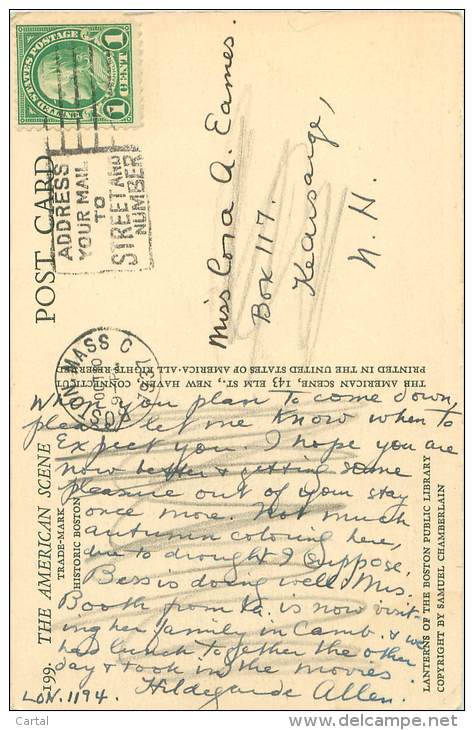 UNITED STATES POSTAGE
1 CENT 1
ADDRESS
YOUR MAIL
TO
STREET AND
NUMBER
BOSTON, MASS C
OCT 10
1937
POST CARD
Miss Cora A. Eames.
Box 117.
Kearsarge,
N. H.
THE AMERICAN SCENE, 143 ELM ST., NEW HAVEN, CONNECTICUT
PRINTED IN THE UNITED STATES OF AMERICA-ALL RIGHTS RESERVED
199. THE AMERICAN SCENE
TRADE-MARK
HISTORIC BOSTON
LANTERNS OF THE BOSTON PUBLIC LIBRARY
COPYRIGHT BY SAMUEL CHAMBERLAIN
When you plan to come down,
please let me know when to
Expect you. I hope you are
now better & getting some
pleasure out of your stay
once more. Not much
autumn coloring here,
due to drought I suppose.
Bess is doing well. Mrs.
Booth from Va. is now visit-
ing her family in Camb. & we
had lunch together the other
day & took in the movies.
Hildegarde Allen.
LON. 1194.
Cartal
www.delcampe.net